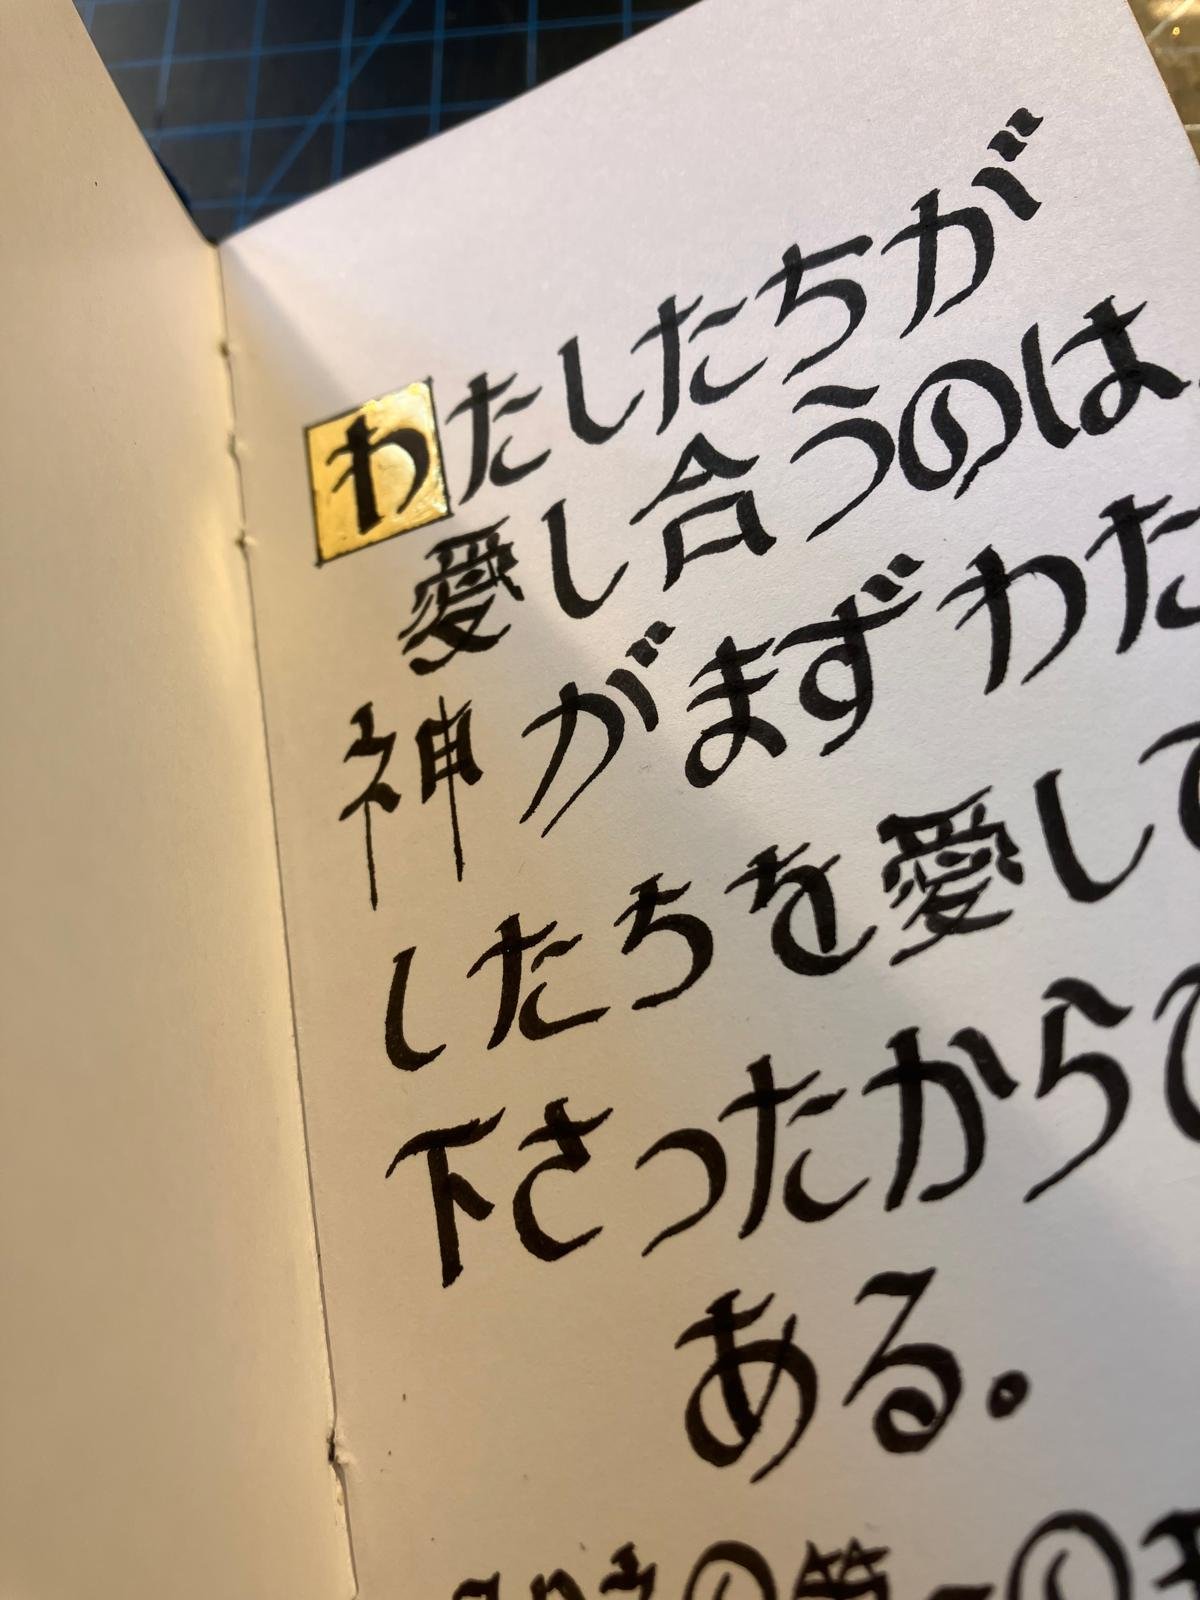 わたしたちが
愛し合うのは、
神がまずわた
したちを愛して
下さったからで
ある。
の第一の